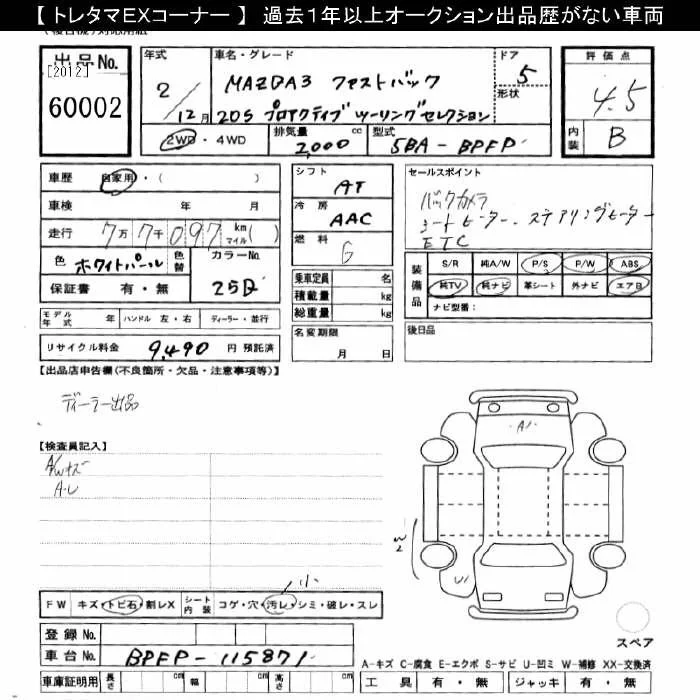 【 トレタマEXコーナー 】 過去1年以上オークション出品歴がない車両
出品No.
[2012]
60002
年式
2/12月
車名・グレード
MAZDA3 ファストバック
20S プロアクティブ ツーリングセレクション
ドア
5
形状
2WD・4WD
排気量
2,000 cc
型式
5BA-BPFP
評価点
4.5
内装
B
車歴 自家用・( )
車検 年 月
走行 7万7千097 km(マイル)
色 ホワイトパール 色替
カラーNo.
25D
保証書 有・無
シフト
AT
冷房
AAC
燃料
G
乗車定員 名
積載量 kg
総重量 kg
名変期限
月 日
セールスポイント
バックカメラ
シートヒーター・ステアリングヒーター
ETC
装備品
S/R 純A/W P/S P/W ABS
純TV 純ナビ 革シート 外ナビ エアB
ナビ型番:
後日品
モデル年式 年 ハンドル 左・右 ディーラー・並行
リサイクル料金 9,490 円 預託済
【出品店申告欄(不良箇所・欠品・注意事項等)】
ディーラー出品
【検査員記入】
A/Wキズ
A-L
A1
W2
U1
小
FW キズ・トビ石・割レX シート内装 コゲ・穴・汚レ・シミ・破レ・スレ
登録No.
車台No. BPFP-115871
車庫証明用 長さ cm 幅 cm 高さ cm
スペア
A-キズ C-腐食 E-エクボ S-サビ U-凹ミ W-補修 XX-交換済
工具 有・無 ジャッキ 有・無